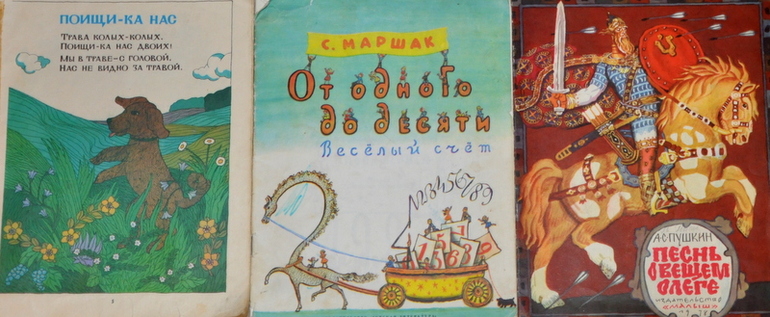 ПОИЩИ-КА НАС
ТРАВА КОЛЫХ-КОЛЫХ.
ПОИЩИ-КА НАС ДВОИХ!
МЫ В ТРАВЕ-С ГОЛОВОЙ,
НАС НЕ ВИДНО ЗА ТРАВОЙ.
С. МАРШАК
От одного
до десяти
Весёлый счёт
123456789
А·С·ПУШКИН
ПЕСНЬ
О ВЕЩЕМ
ОЛЕГЕ
ИЗДАТЕЛЬСТВО
«МАЛЫШ»